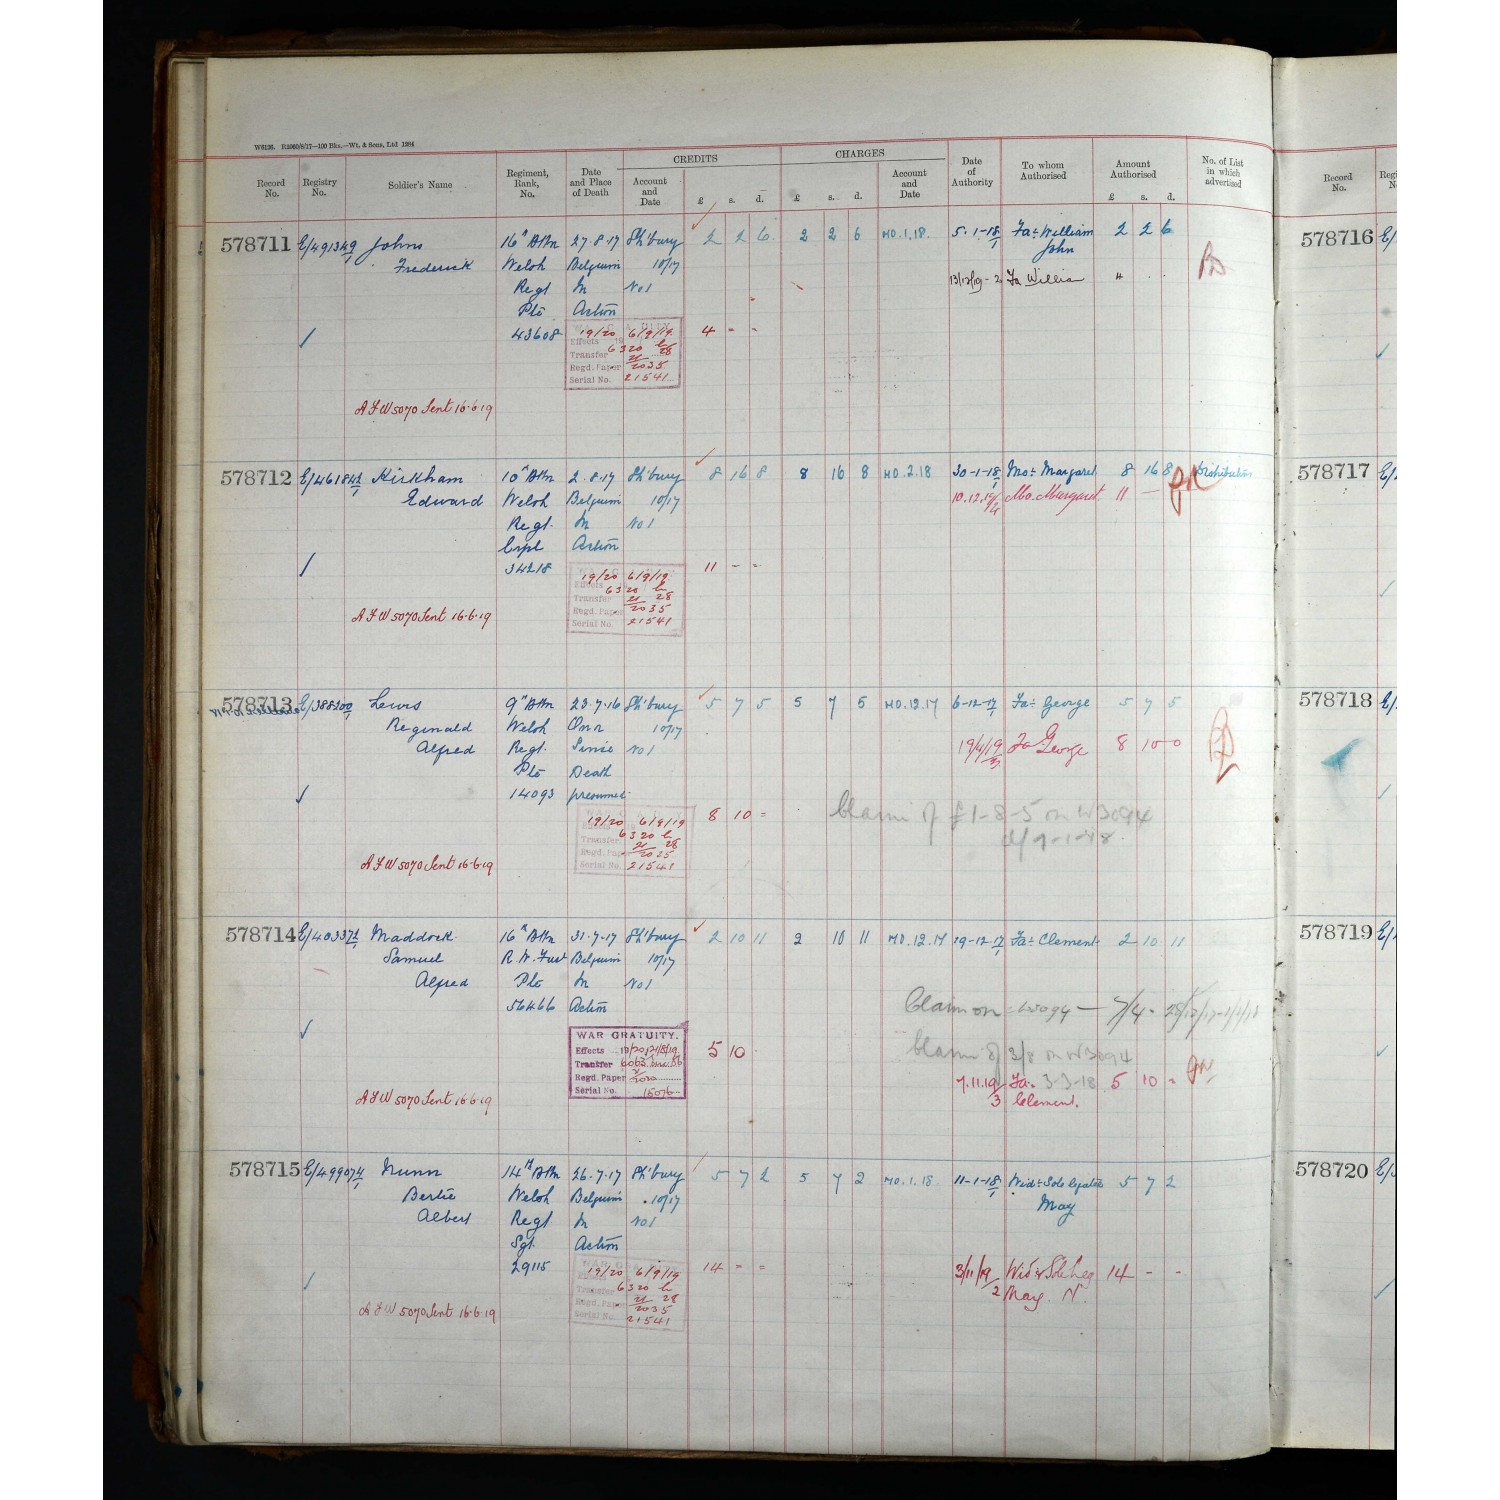 W6126. R2060/8/17—100 Bks.—Wt. & Sons, Ltd 1284
CREDITS CHARGES
Record No. Registry No. Soldier's Name Regiment, Rank, No. Date and Place of Death Account and Date £ s. d. £ s. d. Account and Date Date of Authority To whom Authorised Amount Authorised £ s. d. No. of List in which advertised Record No.
578711 E/491349/1 Johns 16th Bttn 27.8.17 Sh'bury 2 2 6 2 2 6 MO.1.18. 5.1-18/1 Fa: William 2 2 6 578716 E/
Frederick Welsh Belgium 10/17 John
Regt In No 1 Fa William 4 . .
Pte Action
43608 19/20 6/9/19 4 - -
Effects
6320
Transfer 28
Regd. Paper 2035
Serial No. 21541
A F W 5070 Sent 16.6.19
578712 E/461842/1 Kirkham 10th Bttn 2.8.17 Sh'bury 8 16 8 8 16 8 MO.2.18 30-1-18/1 Mo: Margaret 8 16 8 578717 E/
Edward Welsh Belgium 10/17 10.12.19/4 Mo. Margaret 11 -
Regt. In No 1
Crpl Action
34218 11 - -
19/20 6/9/19.
6320
Transfer 28
Regd. Paper 2035
Serial No. 21541
A F W 5070 Sent 16.6.19
578713 E/388200/1 Lewis 9th Bttn 23.7.16 Sh'bury 5 7 5 5 7 5 MO.12.17 6-12-17/1 Fa: George 5 7 5 578718 E/
Reginald Welsh On or 10/17
Alfred Regt. Since No 1 19/4/19/3 Fa George 8 10 0
Pte Death
14093 presumed
8 10 =
19/20 6/9/19
6320
Transfer 28
Regd. Pap 2035
Serial No. 21541
Claim of £1-8-5 on W3094
d/9-1-18.
A F W 5070 Sent 16.6.19
578714 E/403372/1 Maddock 16th Bttn 31.7.17 Sh'bury 2 10 11 2 10 11 MO.12.17 19-12-17/1 Fa: Clement 2 10 11 578719 E/
Samuel R. W. Fus Belgium 10/17
Alfred Pte In No 1
56466 Action
Claim on
WAR GRATUITY. 5 10
Effects 19/20
Transfer
Regd. Paper
Serial No. 15076
Claim of 3/8 on W3094
3-3-18
7.11.19/3 Fa. Clement. 5 10 -
A F W 5070 Sent 16.6.19
578715 E/499074/1 Nunn 14th Bttn 26.7.17 Sh'bury 5 7 2 5 7 2 MO.1.18 11-1-18/1 Wid: Sole legatee 5 7 2 578720 E/
Bertie Welsh Belgium 10/17 May
Albert Regt In No 1
Sgt. Action
29115 14 = = 3/11/19/2 Wid & Sole Leg 14 - -
May N.
19/20 6/9/19
6320
Transfer 28
Regd. Paper 2035
Serial No. 21541
A F W 5070 Sent 16.6.19